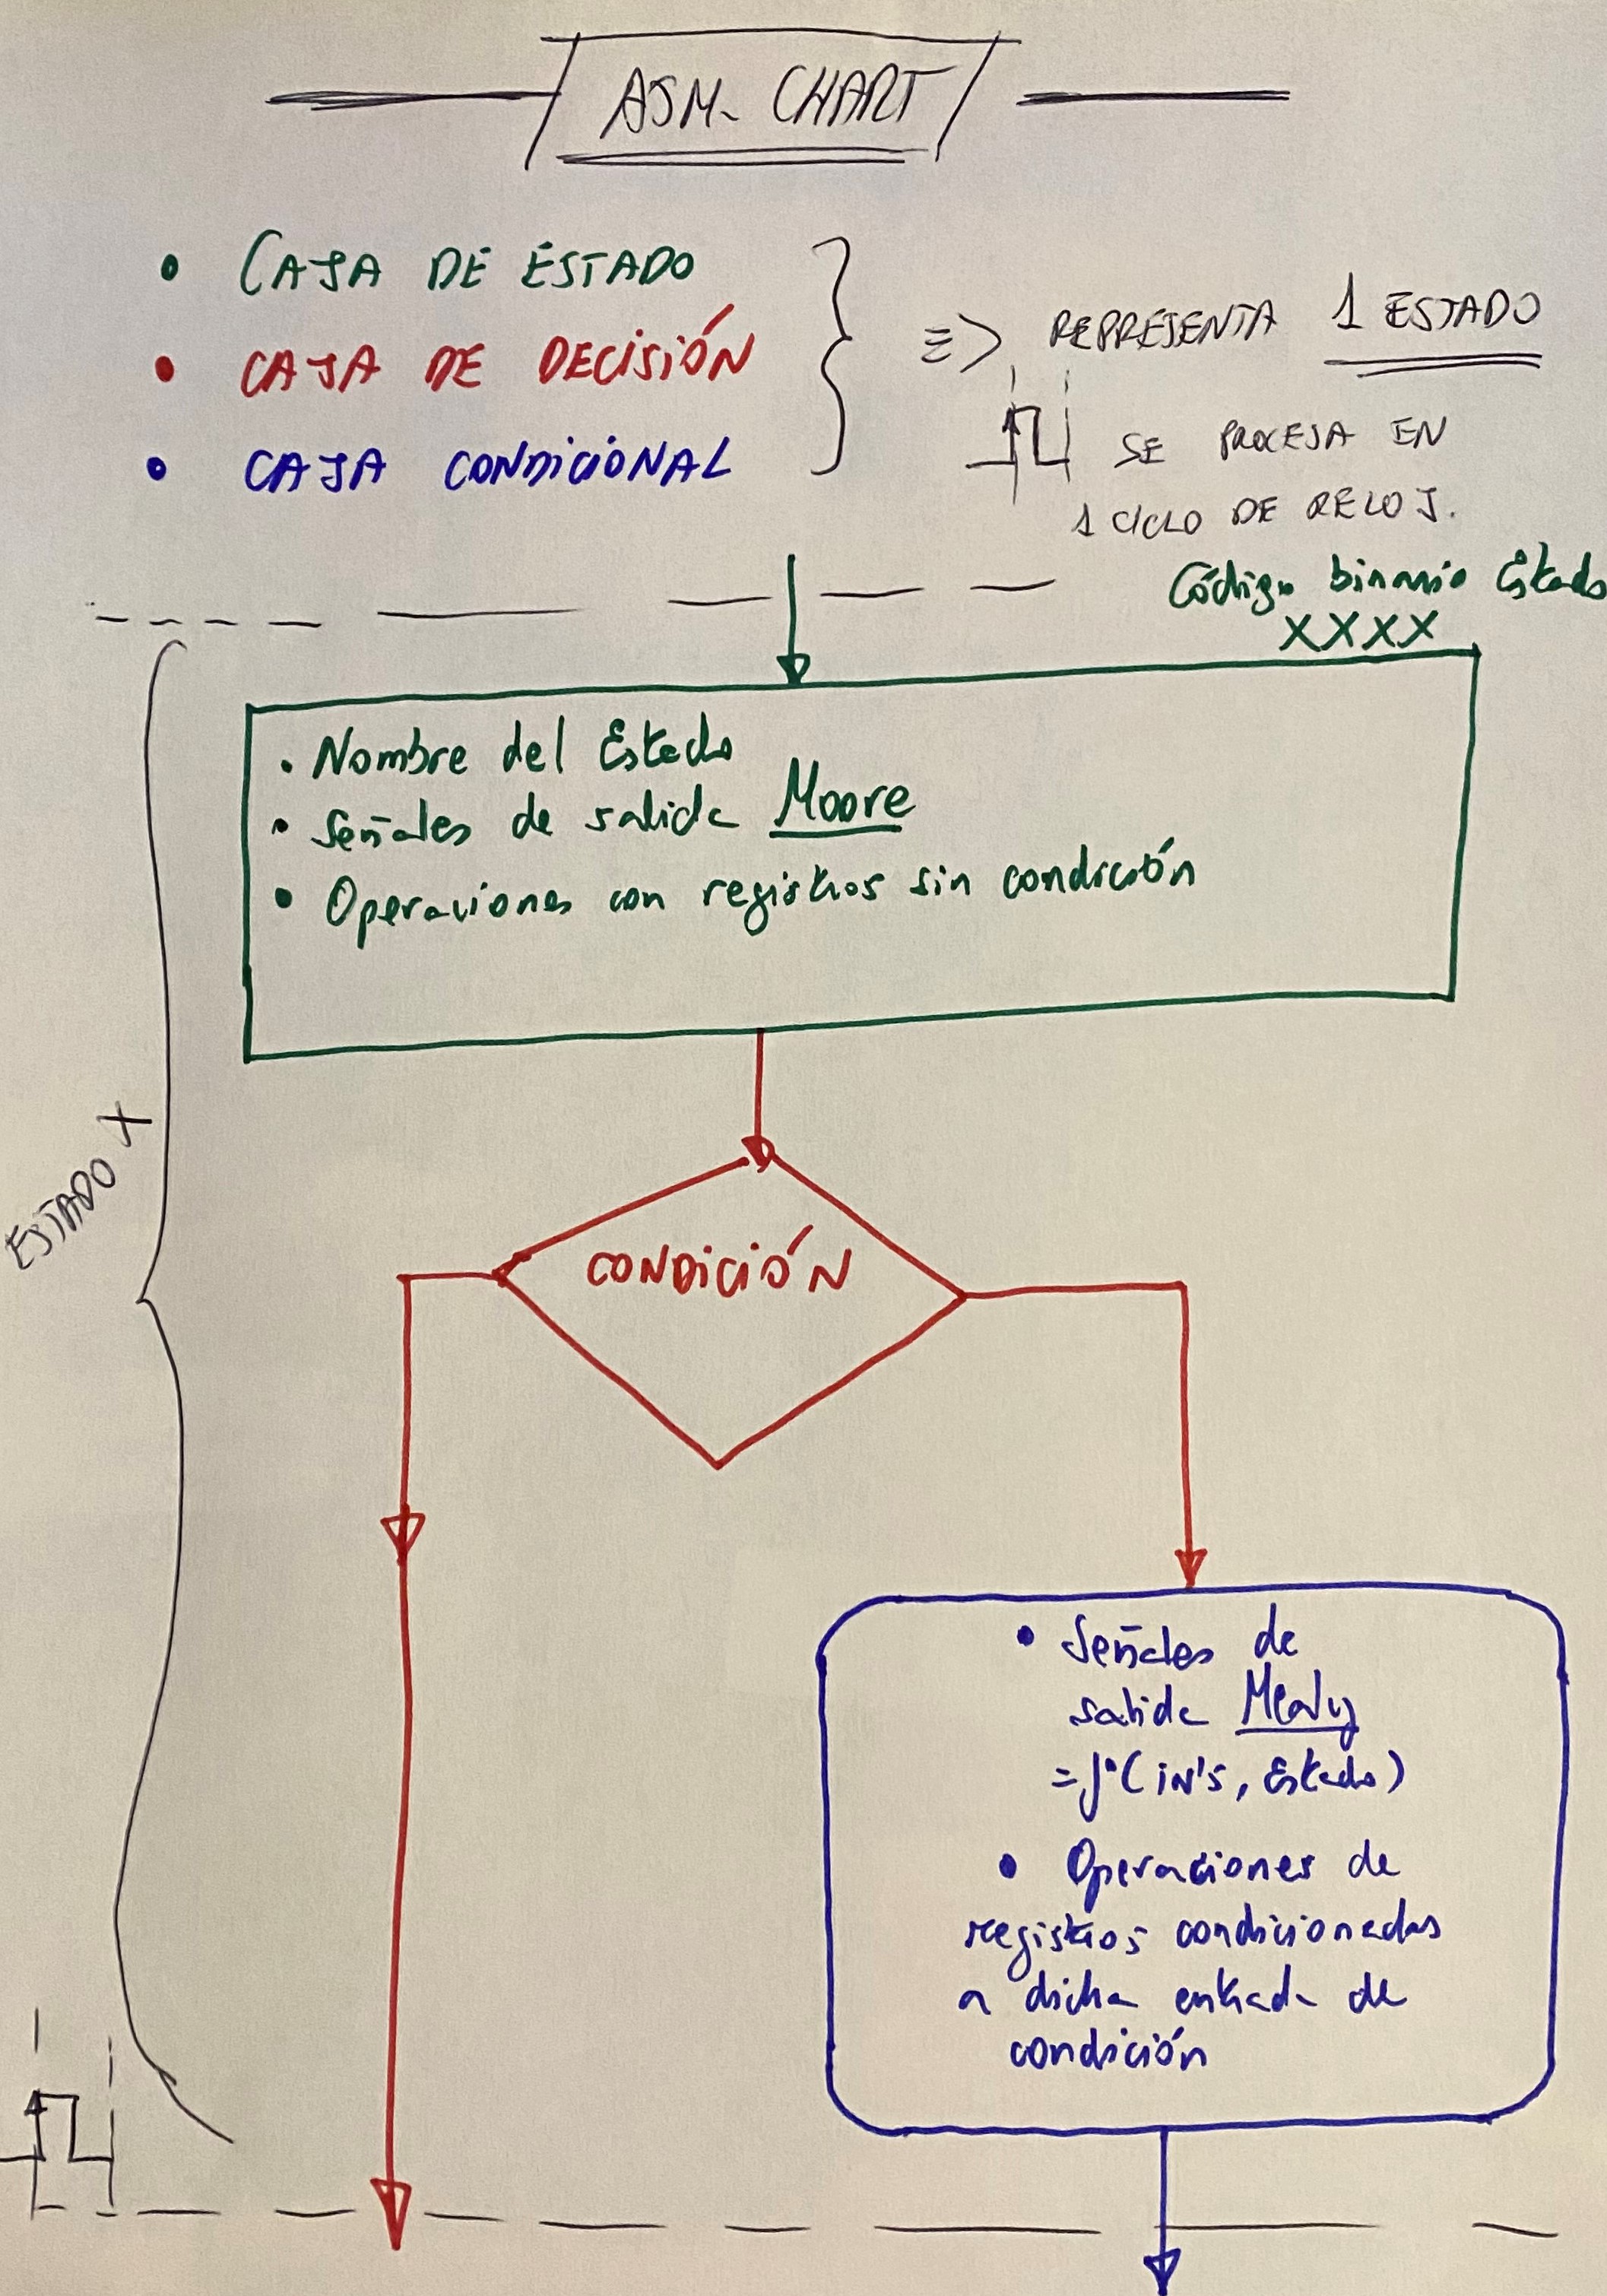 ASM CHART
• CAJA DE ESTADO
• CAJA DE DECISIÓN
• CAJA CONDICIONAL
=> REPRESENTA 1 ESTADO
SE PROCESA EN
1 CICLO DE RELOJ.
Código binario Estado
XXXX
• Nombre del Estado
• Señales de salida Moore
• Operaciones con registros sin condición
ESTADO X
CONDICIÓN
• Señales de
salida Mealy
=f(IN's, Estado)
• Operaciones de
registros condicionadas
a dicha entrada de
condición